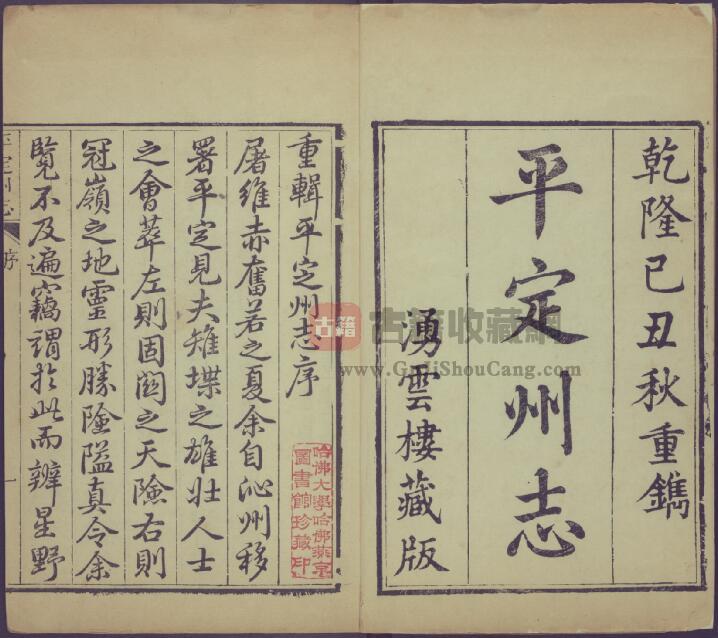 乾隆己丑秋重鐫
平定州志
湧雲樓藏版
重輯平定州志序
屠維赤奮若之夏余自沁州移
署平定見夫雉堞之雄壮人士
之會萃左則固關之天險右則
冠嶺之地靈形勝險隘真令余
覽不及遍竊謂於此而辨星野
平定州志
序
一
哈佛大學哈佛燕京
圖書館珍藏印
古籍
古籍收藏網
www.GuJiShouCang.com